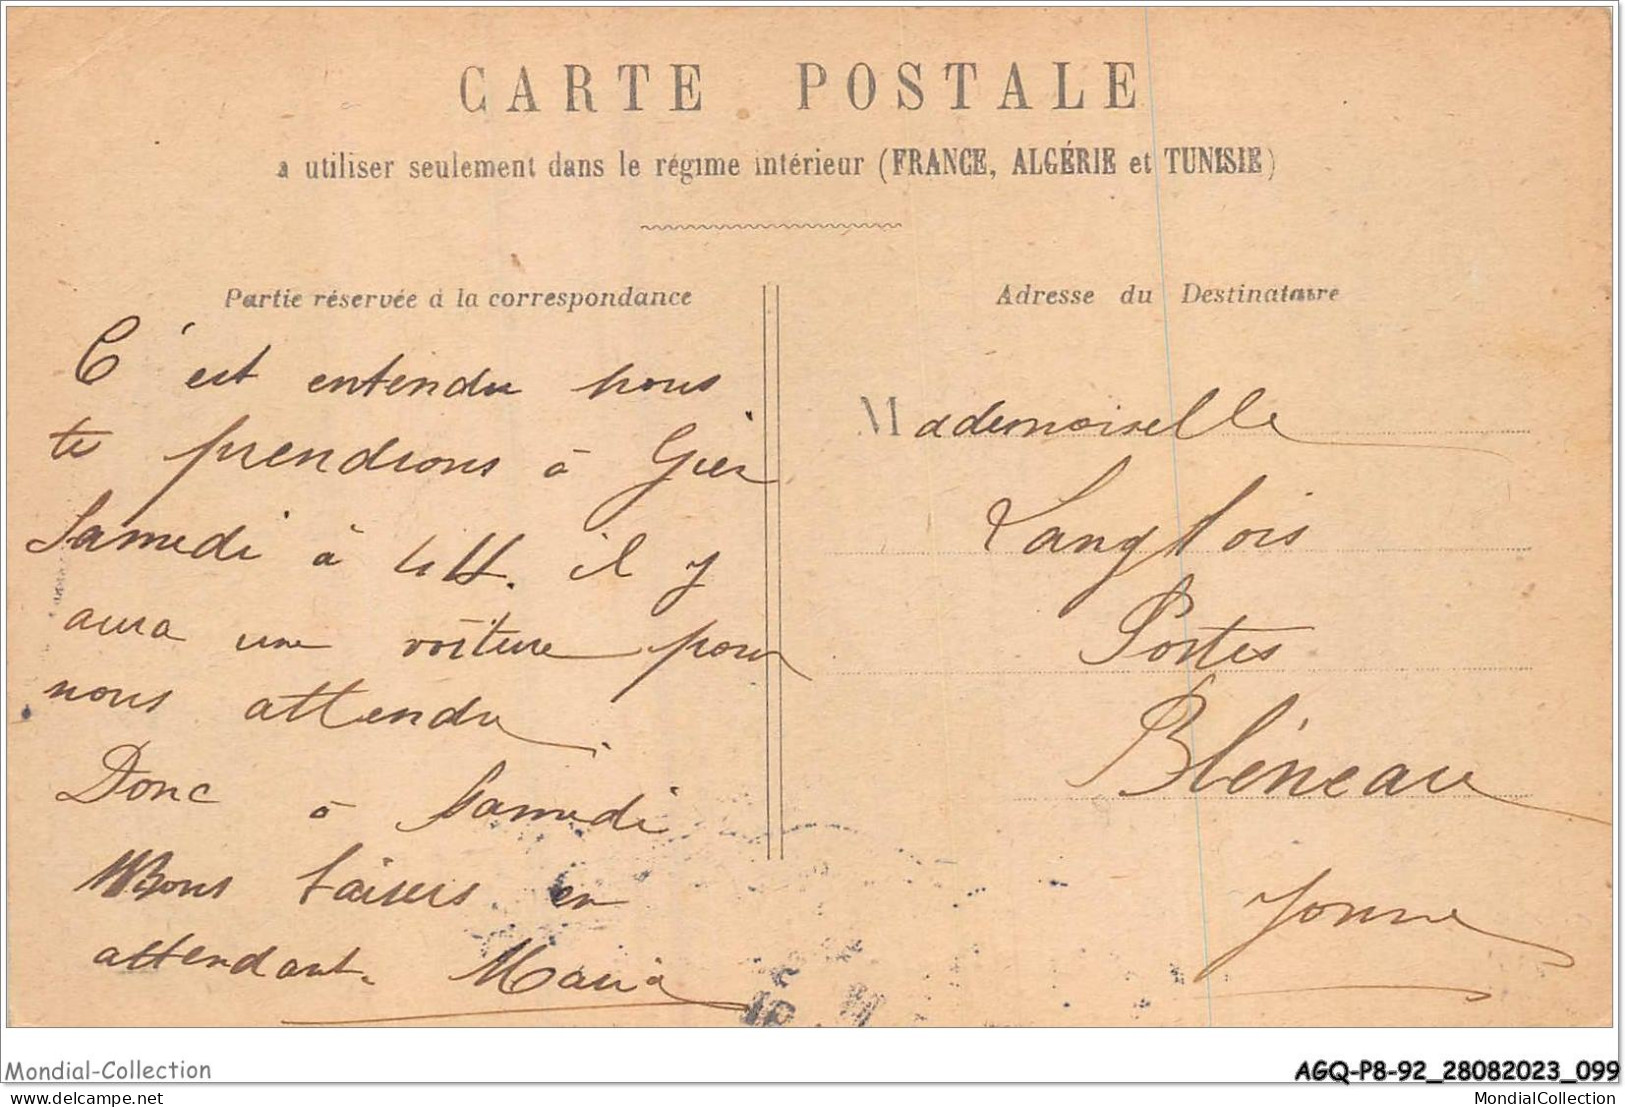 CARTE POSTALE
a utiliser seulement dans le régime intérieur (FRANCE, ALGÉRIE et TUNISIE)
Partie réservée à la correspondance
C'est entendu nous
te prendrons à Gien
Samedi à 4H. il y
aura une voiture pour
nous attendre.
Donc à Samedi
Bons baisers en
attendant. Maria
Adresse du Destinataire
Mademoiselle
Langlois
Postes
Bléneau
Yonne
Mondial-Collection
AGQ-P8-92_28082023_099
delcampe.net
MondialCollection